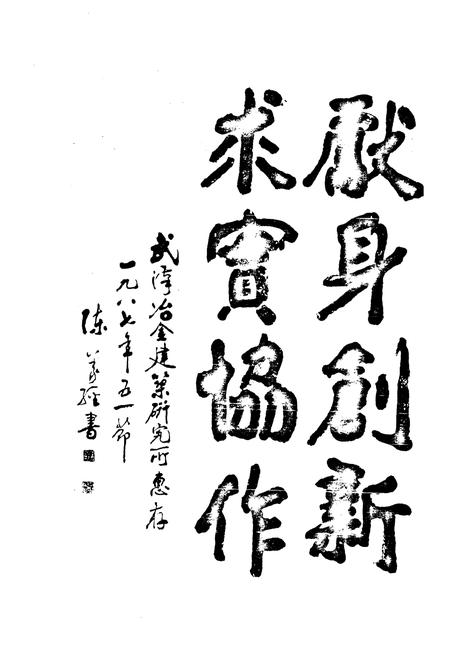 獻身創新
求實協作
武漢冶金建築研究所惠存
一九八七年五一節
陈義經書